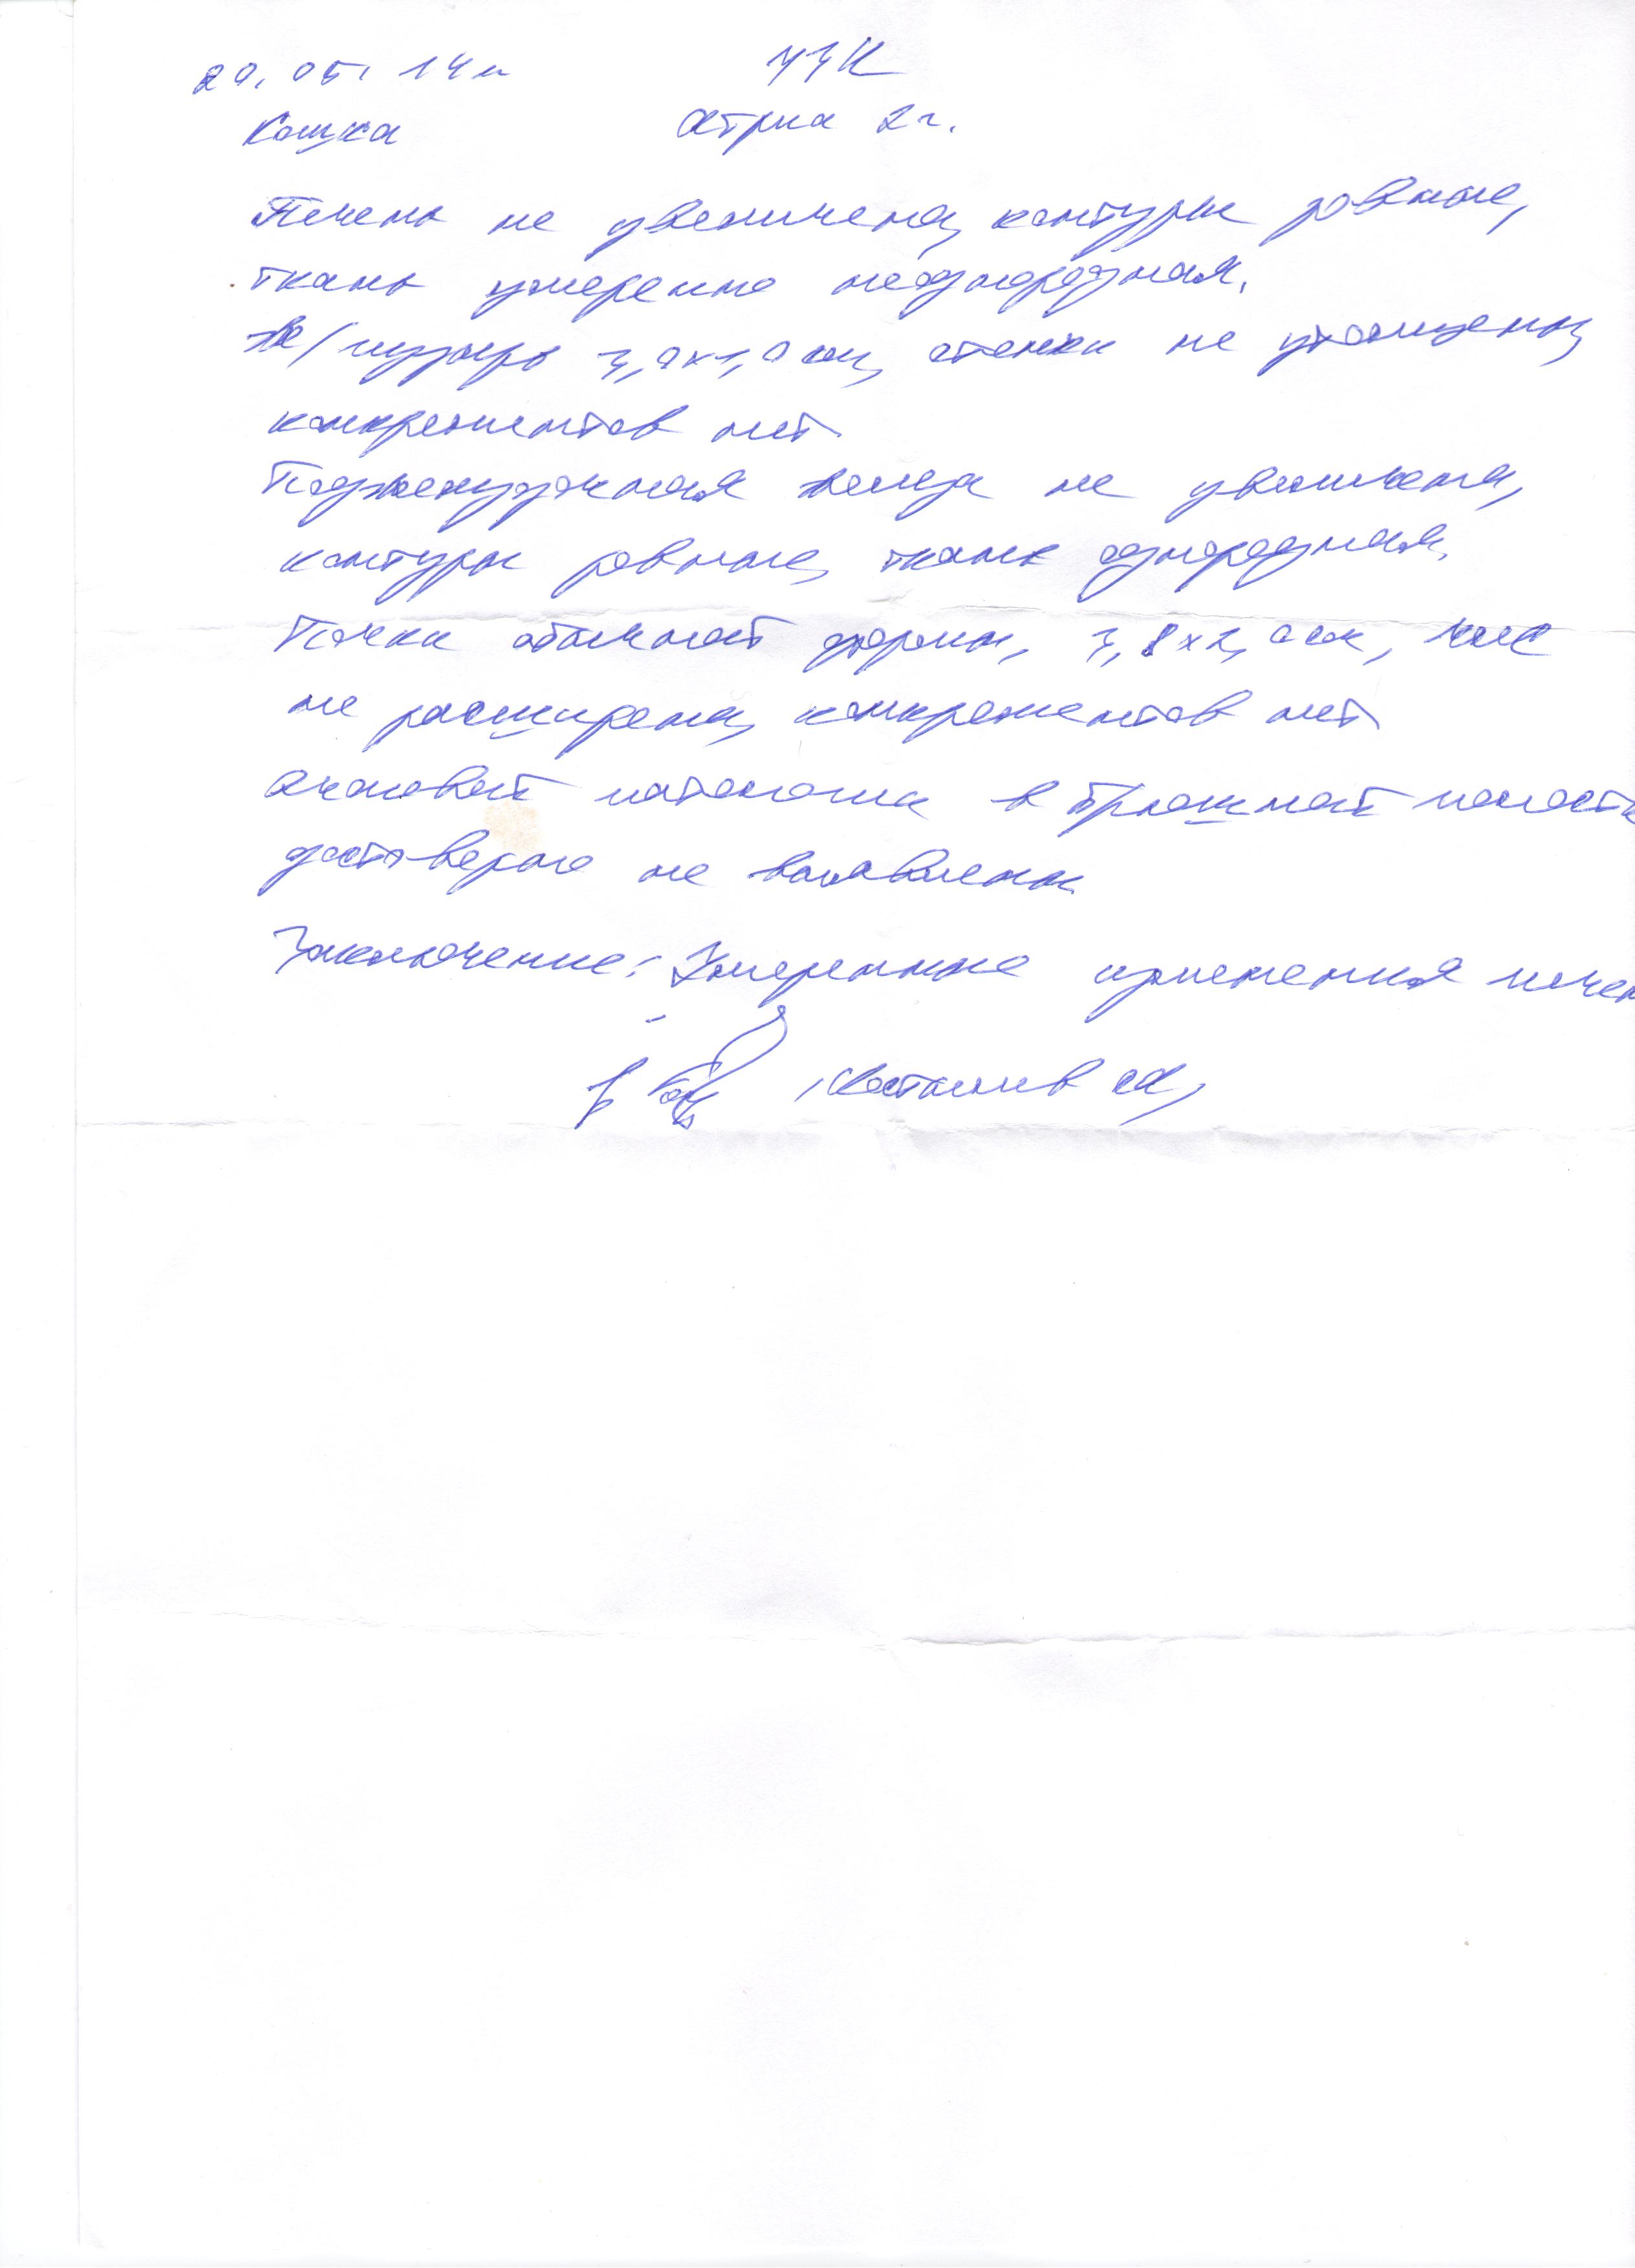 20.05.14г УЗИ
Кошка Астриа 2г.
Печень не увеличена, контуры ровные,
ткань умеренно неоднородная.
Ж/пузырь 3,0х1,0 см, стенки не утолщены,
конкрементов нет.
Поджелудочная железа не увеличена,
контуры ровные, ткань однородная.
Почки обычной формы, 3,8х2,0 см, ЧЛС
не расширена, конкрементов нет
Очаговой патологии в брюшной полости
достоверно не выявлены
Заключение: Умеренные изменения печен